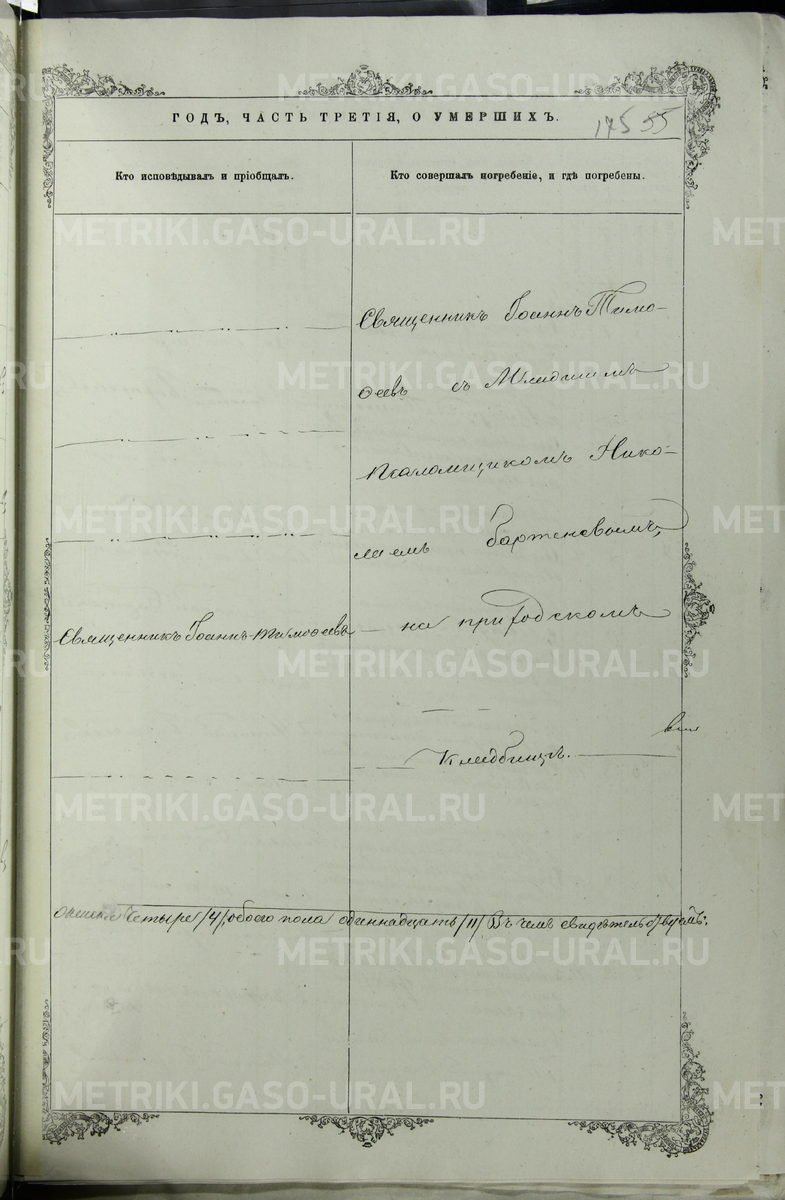 ГОДЪ, ЧАСТЬ ТРЕТІЯ, О УМЕРШИХЪ.
175 55
Кто исповѣдывалъ и пріобщалъ.
Кто совершалъ погребеніе, и гдѣ погребены.
Священникъ Іоаннъ Тимо-
ѳеевъ съ Младшимъ
псаломщикомъ Нико-
лаемъ Бартеновымъ,
Священникъ Іоаннъ Тимоѳеевъ
на приходскомъ
кладбищѣ.
четыре /4/, обоего пола одиннадцать /11/ Въ чемъ свидѣтельствуемъ:
METRIKI.GASO-URAL.RU